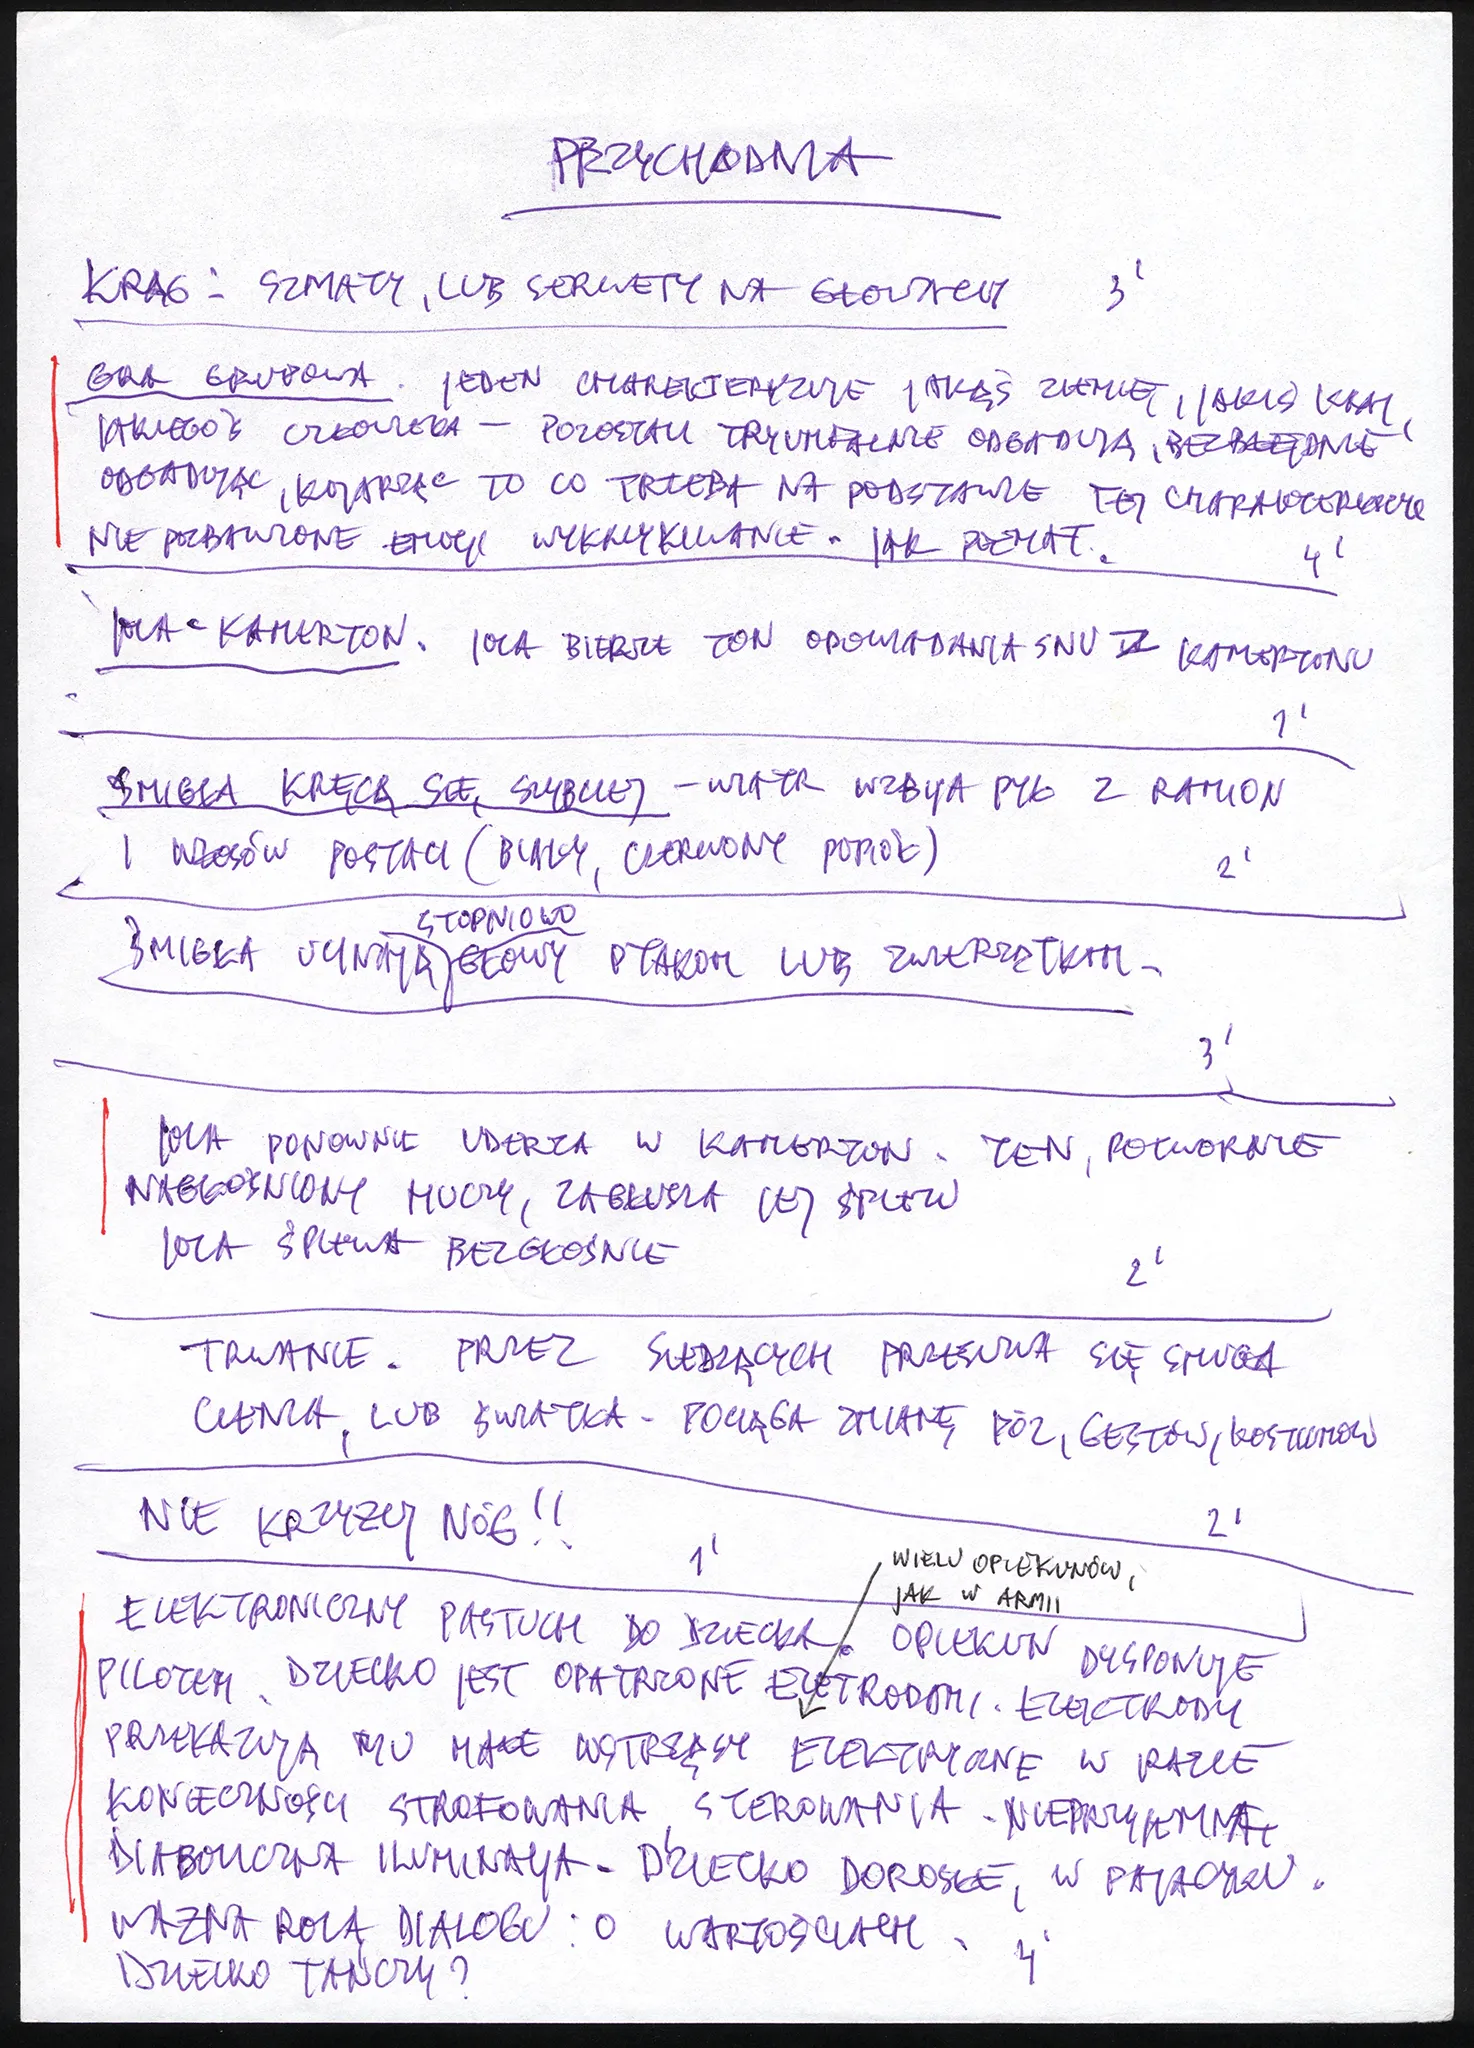 PRZYCHODNIA
KRĄG: SZMATY, LUB SERWETY NA GŁOWACH 3'
GRA GRUPOWA. JEDEN CHARAKTERYZUJE JAKĄŚ ZIEMIĘ, JAKIŚ KRAJ,
JAKIEGOŚ CZŁOWIEKA – POZOSTALI TRYUMFALNIE ODGADUJĄ, BEZBŁĘDNIE
ODGADUJĄC, KOJARZĄC TO CO TRZEBA NA PODSTAWIE TEJ CHARAKTERYSTYKI
NIE POZBAWIONE EMOCJI WYKRZYKIWANIE. JAK POEMAT. 4'
JOLA – KAMERTON. JOLA BIERZE TON OPOWIADANIA SNU Z KAMERTONU
1'
ŚMIGŁA KRĘCĄ SIĘ SZYBCIEJ – WIATR WZBIJA PYŁ Z RAMION
I WŁOSÓW POSTACI (BIAŁY, CZERWONY POPIÓŁ) 2'
STOPNIOWO
ŚMIGŁA UCINAJĄ GŁOWY PTAKOM LUB ZWIERZĘTKOM –
3'
JOLA PONOWNIE UDERZA W KAMERTON. TEN, POTWORNIE
NAGŁOŚNIONY HUCZY, ZAGŁUSZA JEJ ŚPIEW
JOLA ŚPIEWA BEZGŁOŚNIE
2'
TRWANIE. PRZEZ SIEDZĄCYCH PRZESUWA SIĘ SMUGA
CIENIA, LUB ŚWIATŁA – POCIĄGA ZMIANĘ PÓZ, GESTÓW, KOSTIUMÓW
NIE KRZYŻUJ NÓG!! 2'
1'
WIELU OPIEKUNÓW,
JAK W ARMII
ELEKTRONICZNY PASTUCH DO DZIECKA. OPIEKUN DYSPONUJE
PILOTEM. DZIECKO JEST OPATRZONE ELETRODAMI. ELEKTRODY
PRZEKAZUJĄ MU MAŁE WSTRZĄSY ELEKTRYCZNE W RAZIE
KONIECZNOŚCI STROFOWANIA, STEROWANIA. NIEPRZYJEMNA,
DIABOLICZNA ILUMINACJA – DZIECKO DOROSŁE, W PAJACYKU.
WAŻNA ROLA DIALOGU: O WARTOŚCIACH. 4'
DZIECKO TAŃCZY?